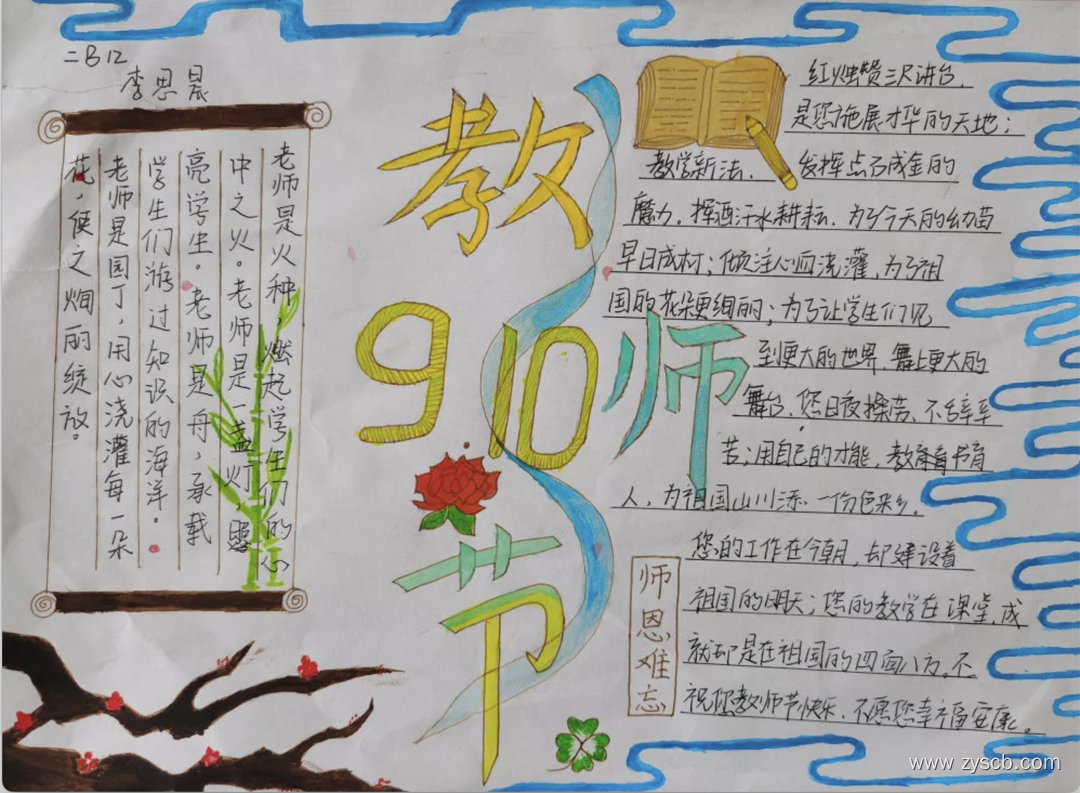 二B12
李思晨
老师是火种，燃起学生们的心
中之火。老师是一盏灯，照
亮学生。老师是舟，承载
学生们游过知识的海洋。
老师是园丁，用心浇灌每一朵
花，使之绚丽绽放。
教
9 10
师
节
红烛赞三尺讲台，
是您施展才华的天地；
教学新法，发挥点石成金的
魔力，挥洒汗水耕耘，为了今天的幼苗
早日成材；倾注心血浇灌，为了祖
国的花朵更绚丽；为了让学生们见
到更大的世界，舞上更大的
舞台，您日夜操劳，不辞辛
苦；用自己的才能，教育书育
人，为祖国山川添一份色彩。
您的工作在今朝，却建设着
祖国的明天；您的教学在课堂，成
就却是在祖国的四面八方。不
祝您教师节快乐，不愿您幸福安康。
师恩难忘
www.zyscb.com